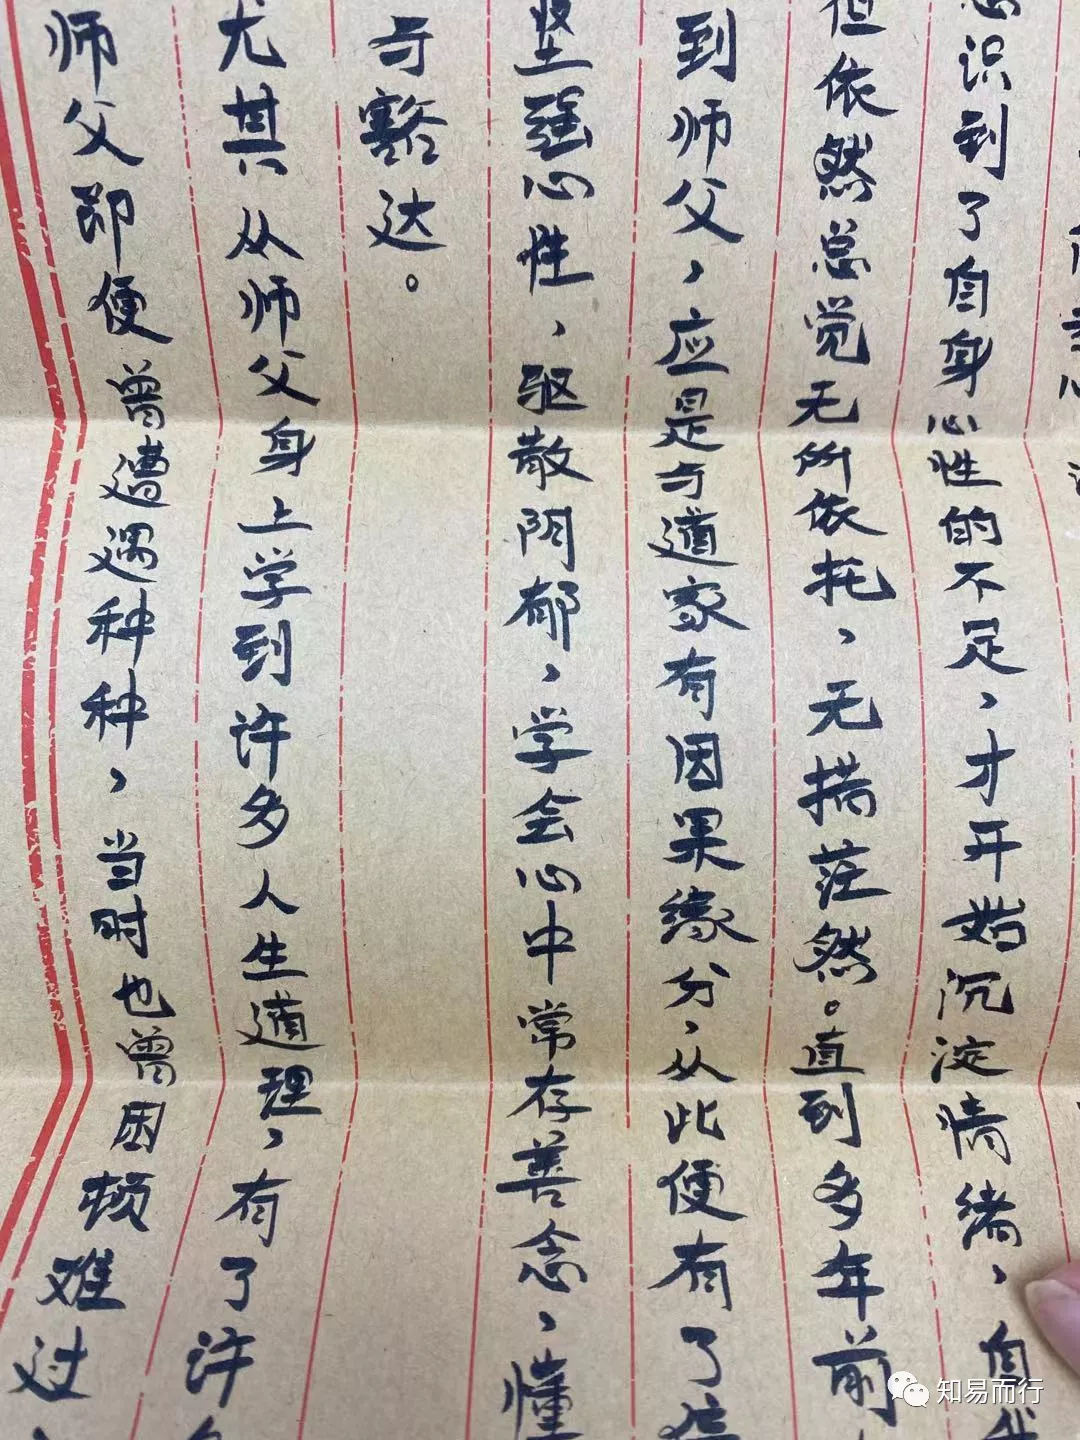 识到了自身心性的不足，才开始沉淀情绪，自我
但依然总觉无所依托，无措茫然。直到多年前
到师父，应是与道家有因果缘分，从此便有了
坚强心性，驱散阴郁，学会心中常存善念，懂
与豁达。
尤其从师父身上学到许多人生道理，有了许多
师父即便曾遭遇种种，当时也曾困顿难过
知易而行